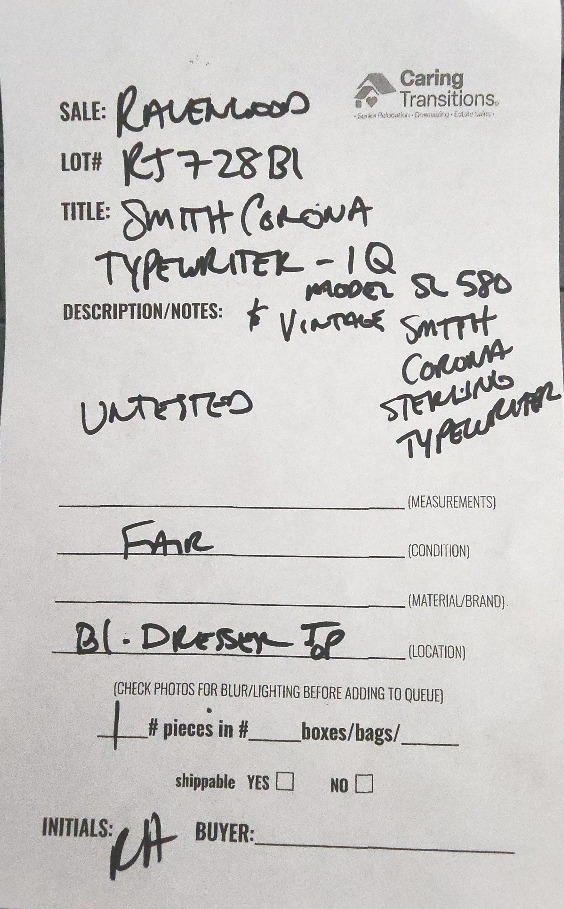 Caring
Transitions®
Senior Relocation • Downsizing • Estate Sales
SALE: RAVENWOOD
LOT# RJ728B1
TITLE: SMITH CORONA
TYPEWRITER - 1Q
MODEL SL 580
DESCRIPTION/NOTES: & VINTAGE SMITH
CORONA
STERLING
TYPEWRITER
UNTESTED
(MEASUREMENTS)
FAIR (CONDITION)
(MATERIAL/BRAND)
B1. DRESSER TOP (LOCATION)
(CHECK PHOTOS FOR BLUR/LIGHTING BEFORE ADDING TO QUEUE)
1 # pieces in # boxes/bags/
shippable YES NO
INITIALS: RH BUYER: